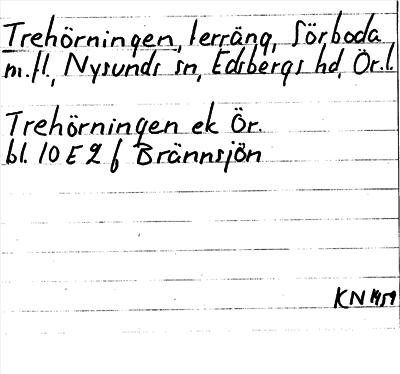 Trehörningen, terräng, Sörboda
m.fl., Nysunds sn, Edsbergs hd, Ör.l.
Trehörningen ek Ör.
bl. 10 E 2 f Brännsjön
KN 1959